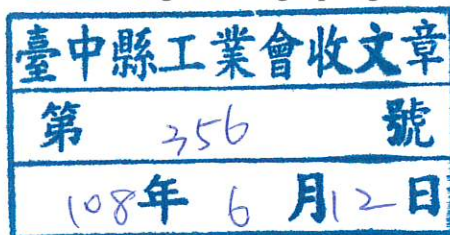 臺中縣工業會收文章
第 356 號
108年 6 月12日